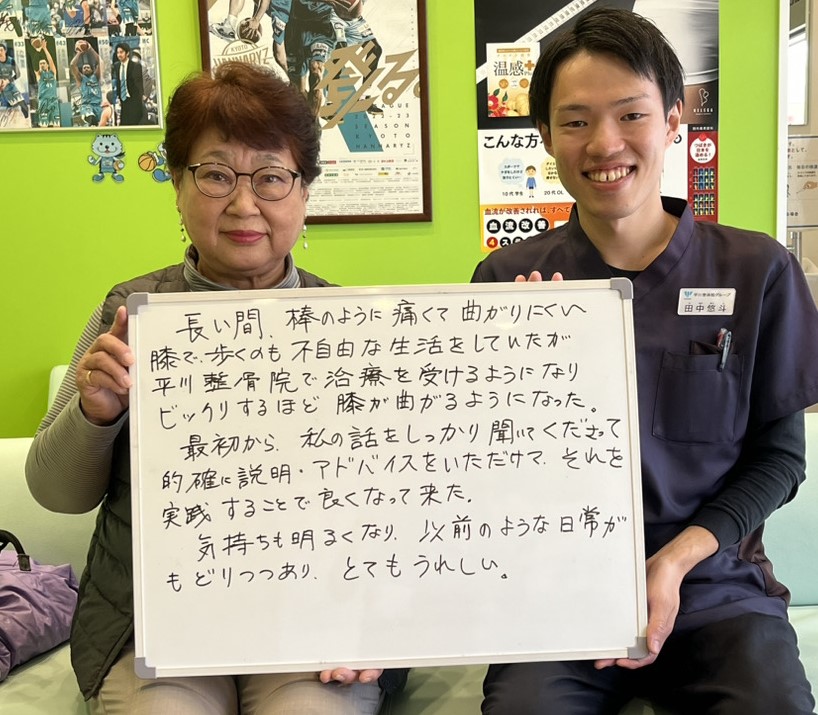 KYOTO
HANNARYZ
LEAGUE
2022-23
SEASON
KYOTO
HANNARYZ
温感
こんな方
10代 学生
20代 OL
血流が改善されれば、すべて
血流改善
田中悠斗
長い間、棒のように痛くて曲がりにくい
膝で、歩くのも不自由な生活をしていたが
平川整骨院で治療を受けるようになり
ビックリするほど膝が曲がるようになった。
最初から、私の話をしっかり聞いてくださって
的確に説明・アドバイスをいただけて、それを
実践することで良くなって来た。
気持ちも明るくなり、以前のような日常が
もどりつつあり、とてもうれしい。